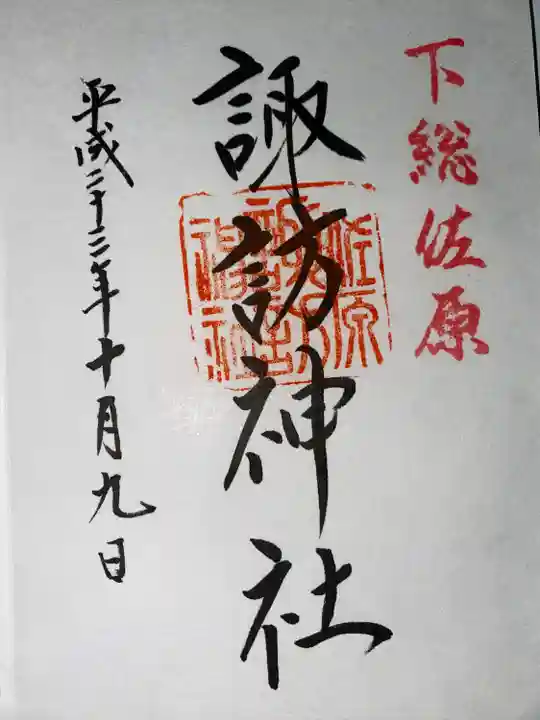 下総佐原
諏訪神社
佐原
諏訪神社
平成二十三年十月九日